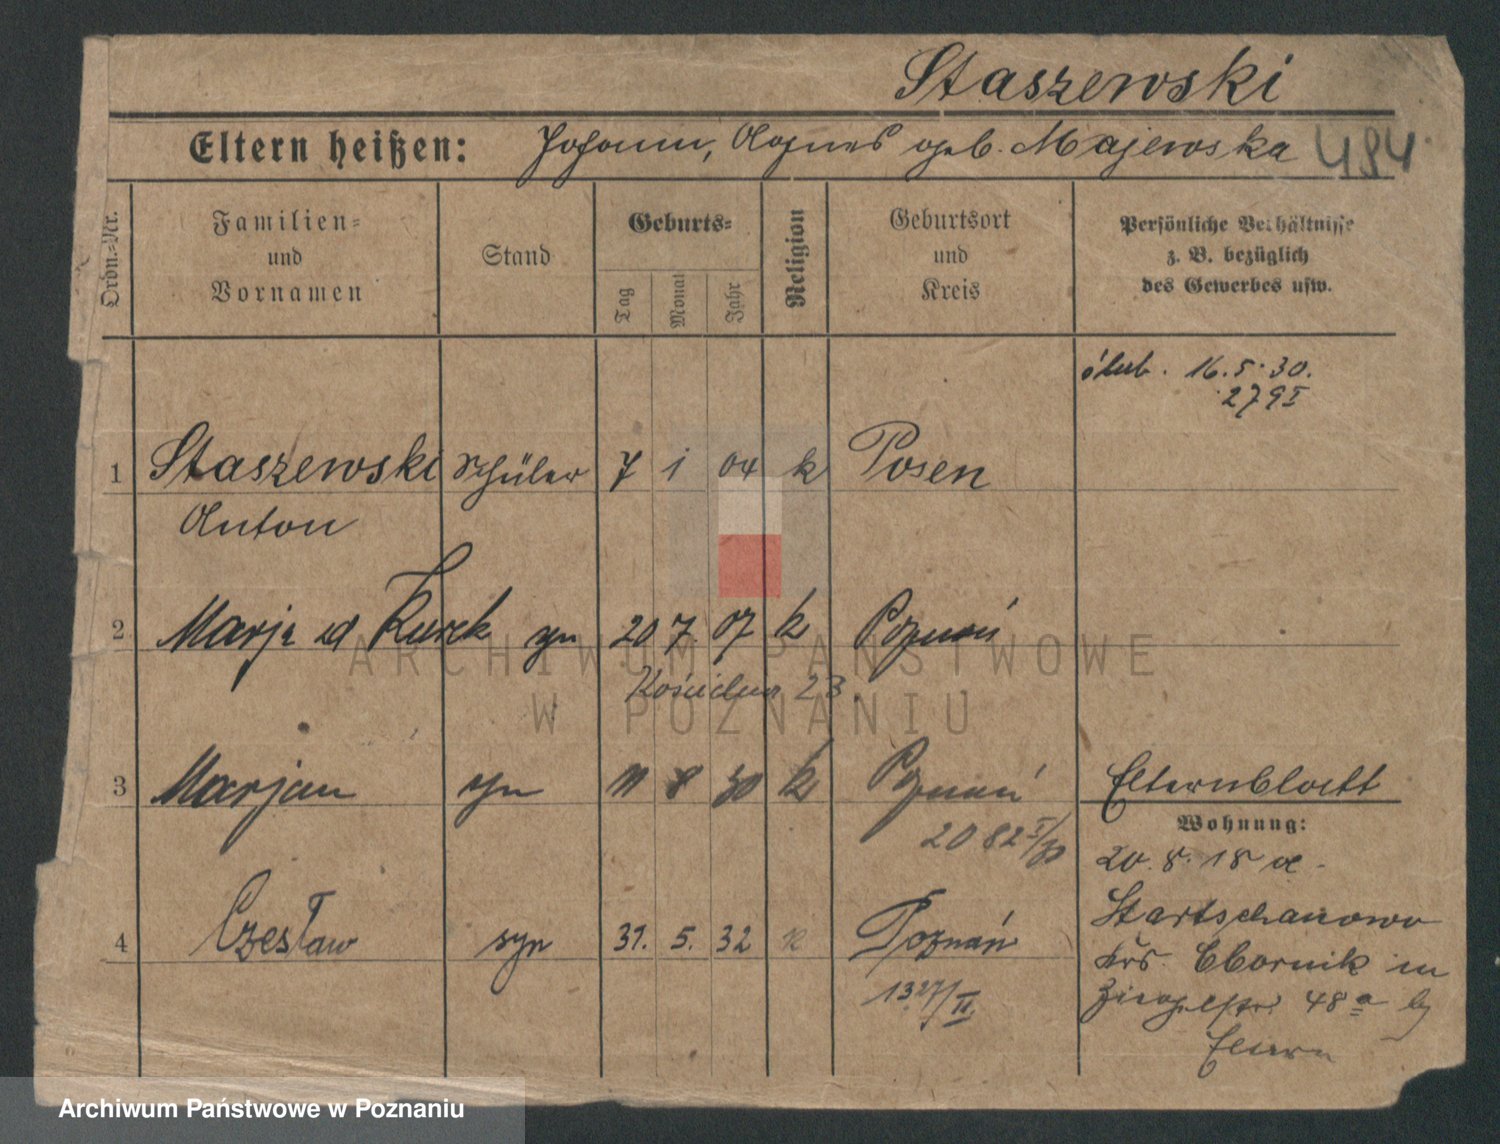 Staszewski
Eltern heißen: Johann, Agnes geb. Majewska 484
Ordn.-Nr.
Familien-
und
Vornamen
Stand
Geburts-
Tag Monat Jahr
Religion
Geburtsort
und
Kreis
Persönliche Verhältnisse
z. B. bezüglich
des Gewerbes usw.
ślub. 16.5.30.
279 I
1 Staszewski Schüler 7 1 04 k Posen
Anton
2 Marja zd Kurek 20 7 07 k Poznań
Kościelna 23.
3 Marjan syn 8 30 k Poznań
Elternblatt
2082 I/30
Wohnung:
20.8.18 a.
4 Czesław syn 31. 5. 32 k Poznań
1327/II.
Startschanowo
Krs. Obornik in
Ziegelstr. 48a b/
Eltern
ARCHIWUM PAŃSTWOWE
W POZNANIU
Archiwum Państwowe w Poznaniu